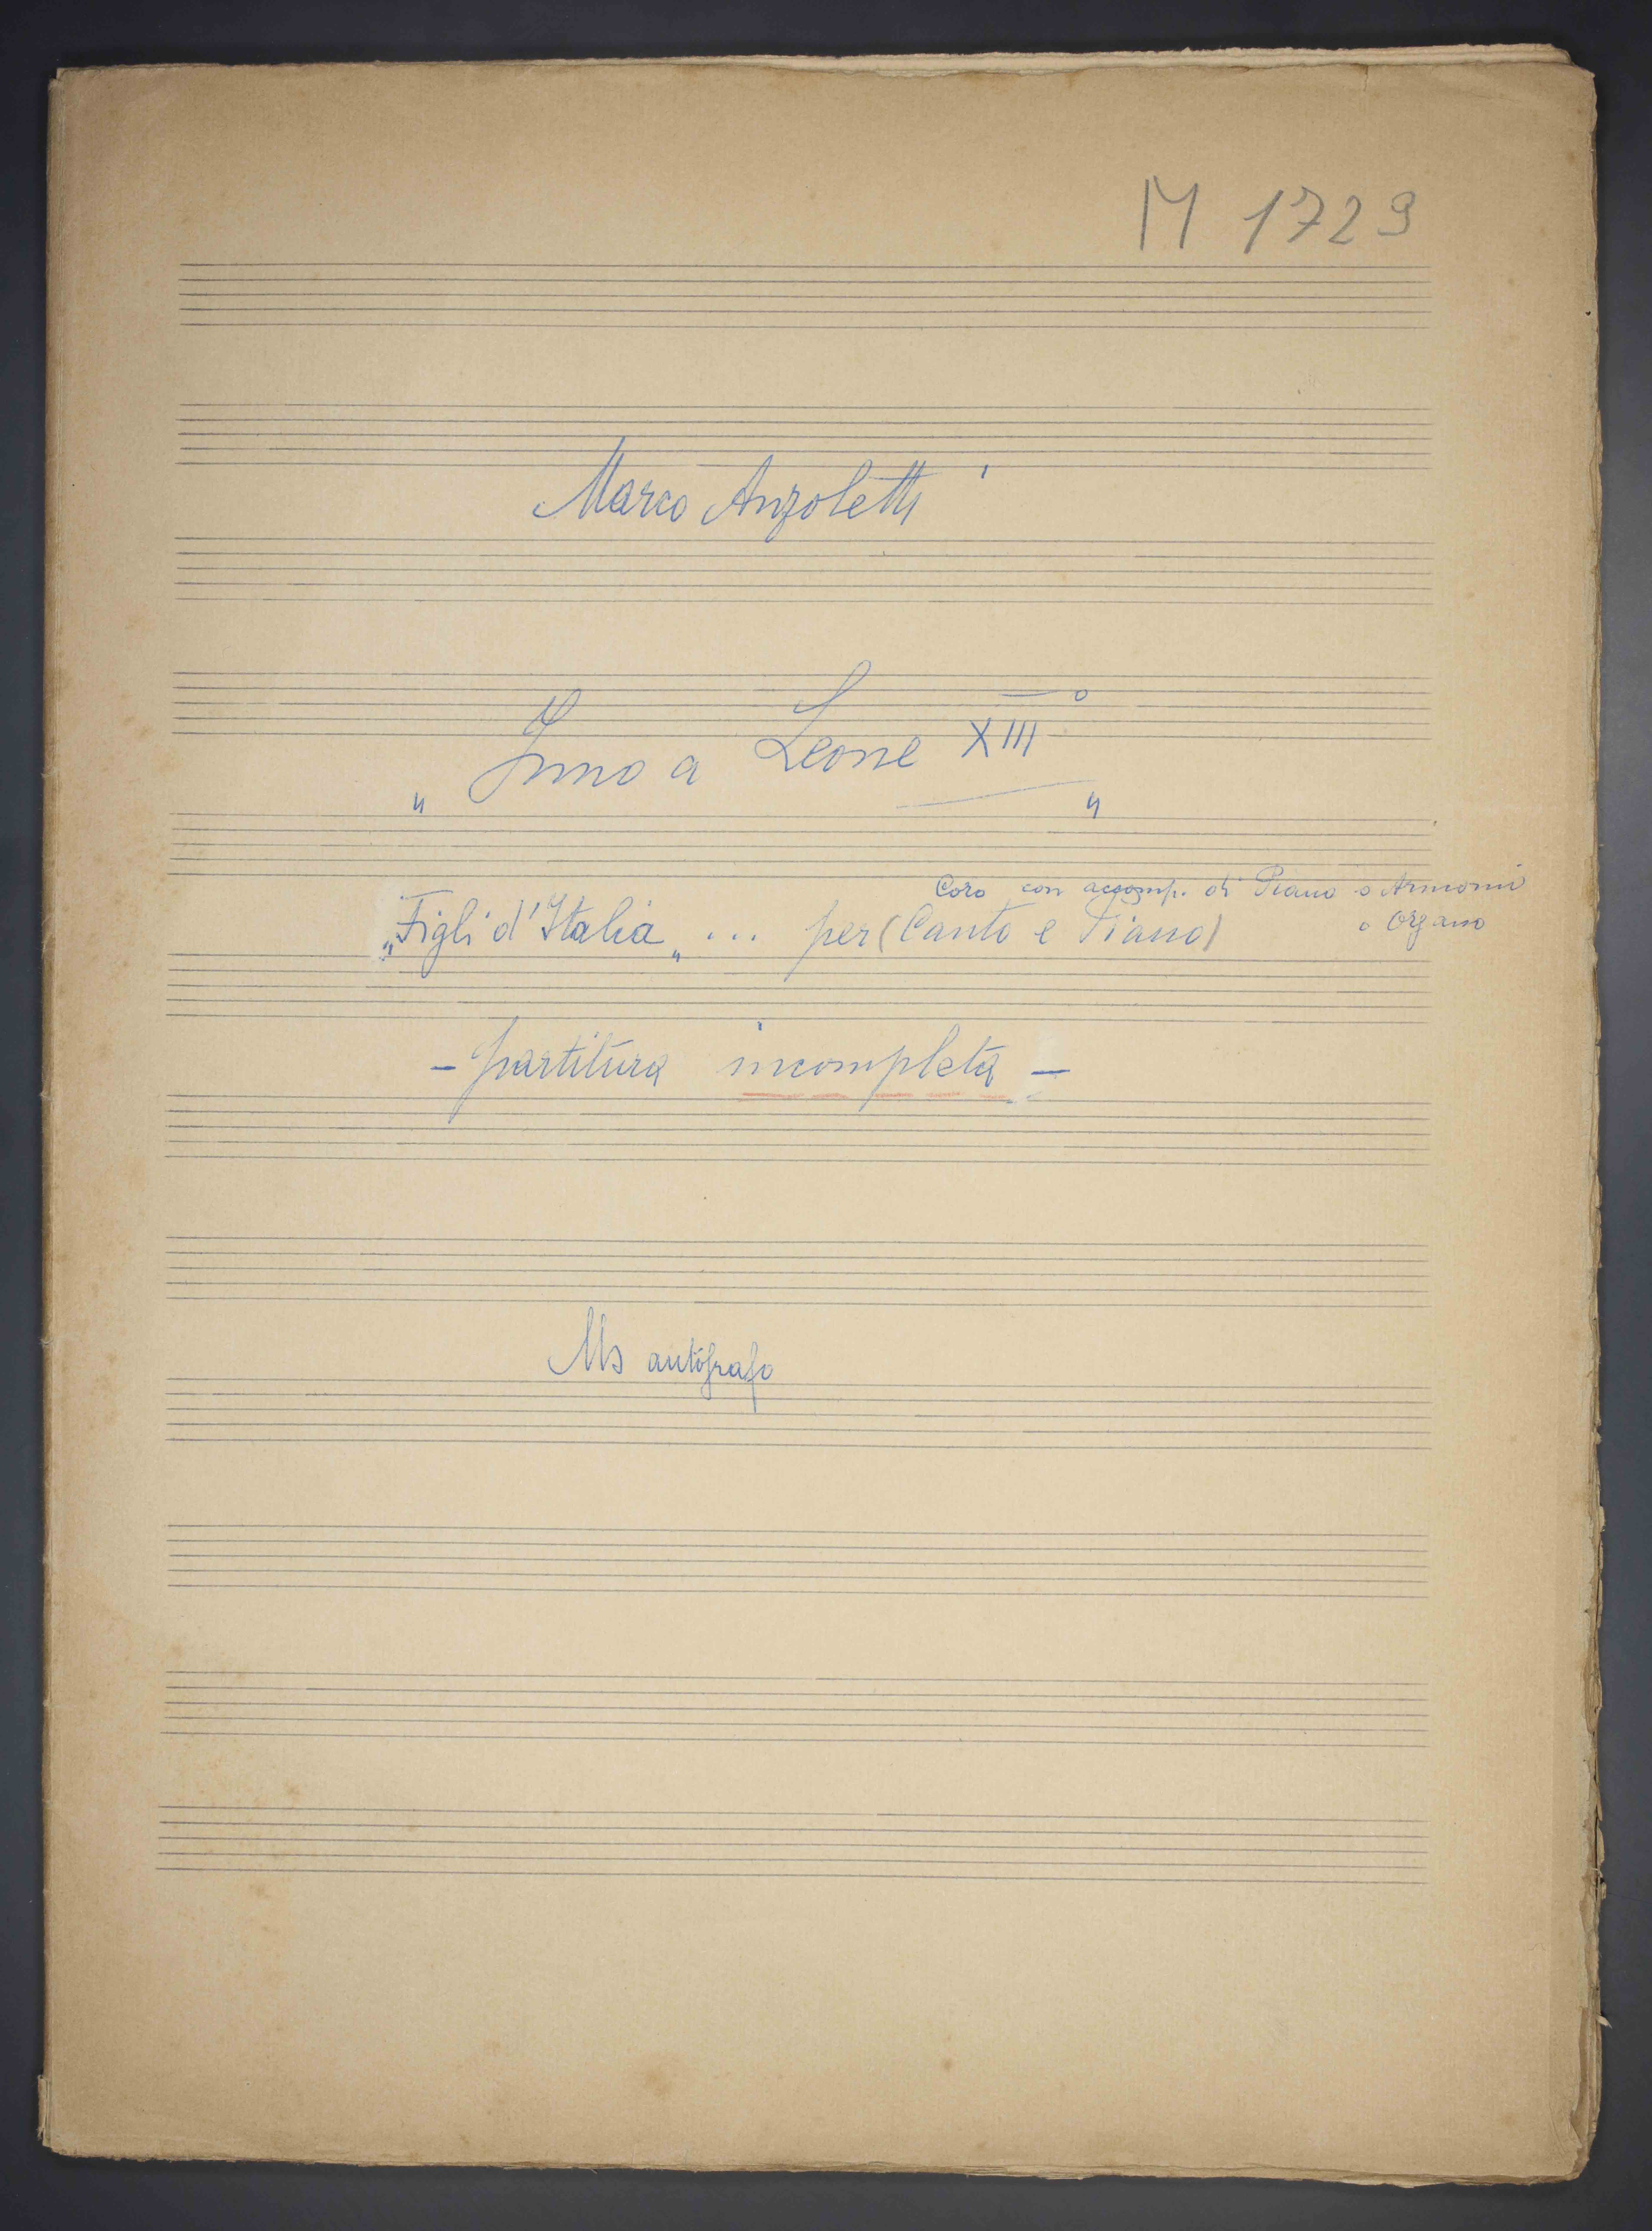 M 1729
Marco Anzoletti
„ Inno a Leone XIII° „
Coro con accomp. di Piano o Armonio
o Organo
„Figli d'Italia„ ... per (Canto e Piano)
- partitura incompleta -
Ms autografo